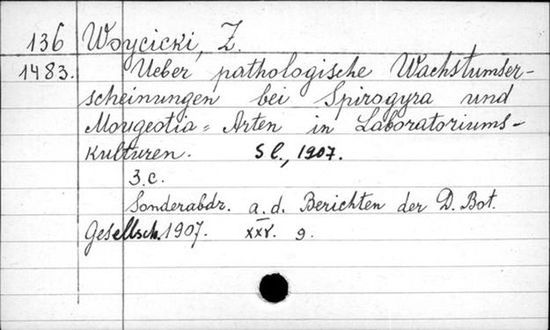 136 Woycicki, Z.
1483. Ueber pathologische Wachstumser-
scheinungen bei Spirogyra und
Mougeotia= Arten in Laboratoriums-
kulturen. S l., 1907.
3.c.
Sonderabdr. a. d. Berichten der D. Bot.
Gesellsch. 1907. XXV. 9.